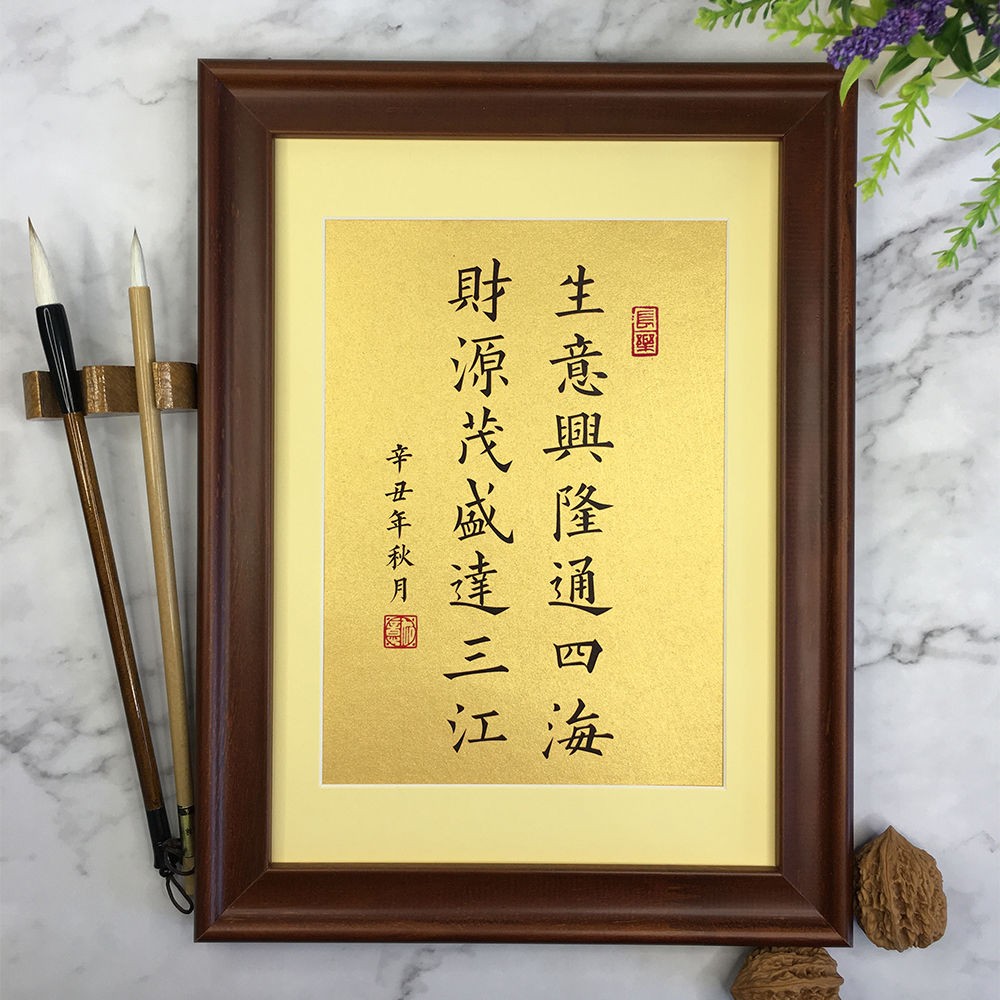 長樂
生意興隆通四海
財源茂盛達三江
辛丑年秋月